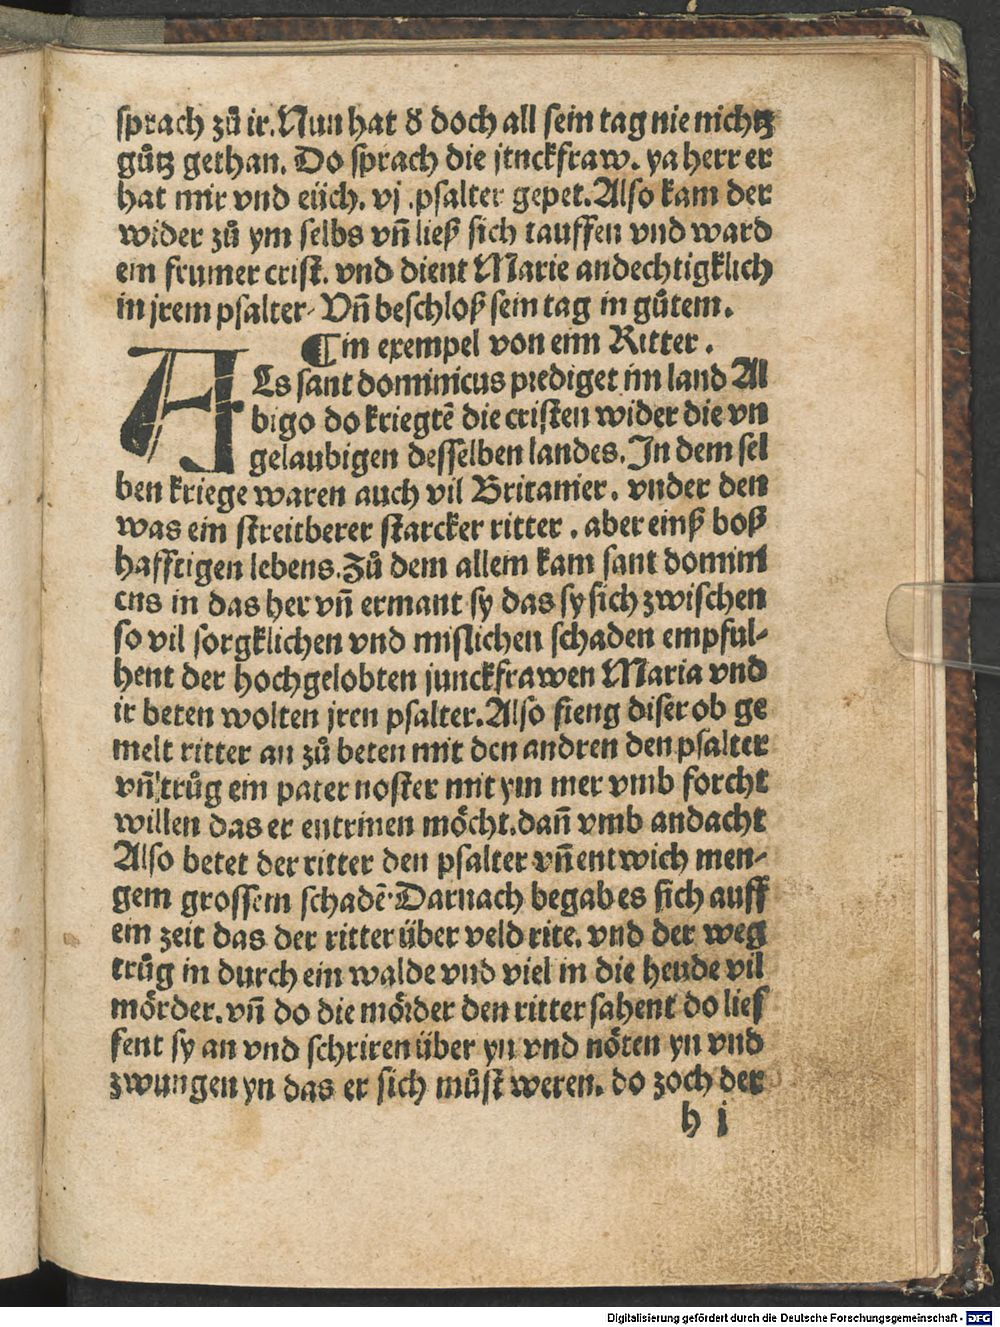 sprach zů ir. Nun hat d̕ doch all sein tag nie nichtz
gůtz gethan. Do sprach die junckfraw. ya herr er
hat mir vnd eüch. vj .psalter gepet. Also kam der
wider zů ym selbs vñ ließ sich tauffen vnd ward
ein frumer crist. vnd dient Marie andechtigklich
in jrem psalter. Vñ beschloß sein tag in gůtem.
¶Ein exempel von einn Ritter.
ALs sant dominicus prediget im land Al
bigo do kriegtē die cristen wider die vn
gelaubigen desselben landes. In dem sel
ben kriege waren auch vil Britanier. vnder den
was ein streitberer starcker ritter. aber einß boß
hafftigen lebens. Zů dem allem kam sant domini
cus in das her vñ ermant sy das sy sich zwischen
so vil sorgklichen vnd mislichen schaden empful-
hent der hochgelobten junckfrawen Maria vnd
ir beten wolten jren psalter. Also fieng diser ob ge
melt ritter an zů beten mit den andren den psalter
vñ trůg ein pater noster mit ym mer vmb forcht
willen das er entrinen möcht. dañ vmb andacht
Also betet der ritter den psalter vñ entwich men-
gem grossem schadē. Darnach begab es sich auff
ein zeit das der ritter über veld rite. vnd der weg
trůg in durch ein walde vnd viel in die hende vil
mörder. vñ do die mörder den ritter sahent do lief
fent sy an vnd schriren über yn vnd nöten yn vnd
zwungen yn das er sich můst weren. do zoch der
h j
Digitalisierung gefördert durch die Deutsche Forschungsgemeinschaft - DFG